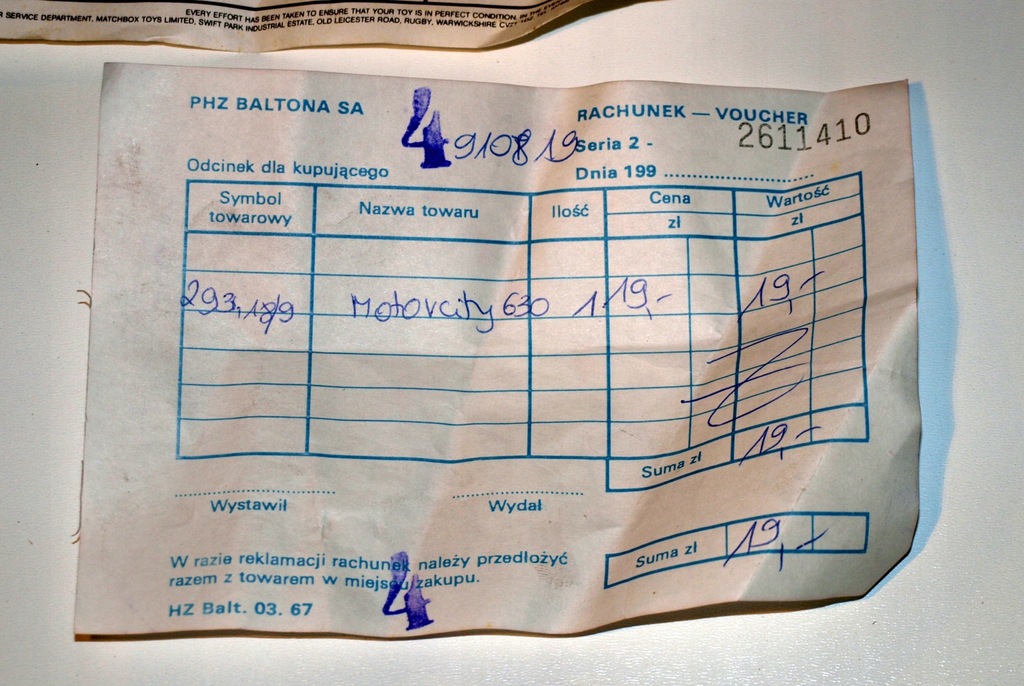 EVERY EFFORT HAS BEEN TAKEN TO ENSURE THAT YOUR TOY IS IN PERFECT CONDITION. IN THE
SERVICE DEPARTMENT, MATCHBOX TOYS LIMITED, SWIFT PARK INDUSTRIAL ESTATE, OLD LEICESTER ROAD, RUGBY, WARWICKSHIRE
PHZ BALTONA SA
RACHUNEK — VOUCHER
4 910819
Seria 2 - 2611410
Odcinek dla kupującego
Dnia 199
Symbol towarowy Nazwa towaru Ilość Cena zł Wartość zł
293, Motorcity 630 1 19,- 19,-
Suma zł 19,-
Wystawił Wydał
Suma zł 19,-
W razie reklamacji rachunek należy przedłożyć
razem z towarem w miejscu zakupu.
4
HZ Balt. 03. 67